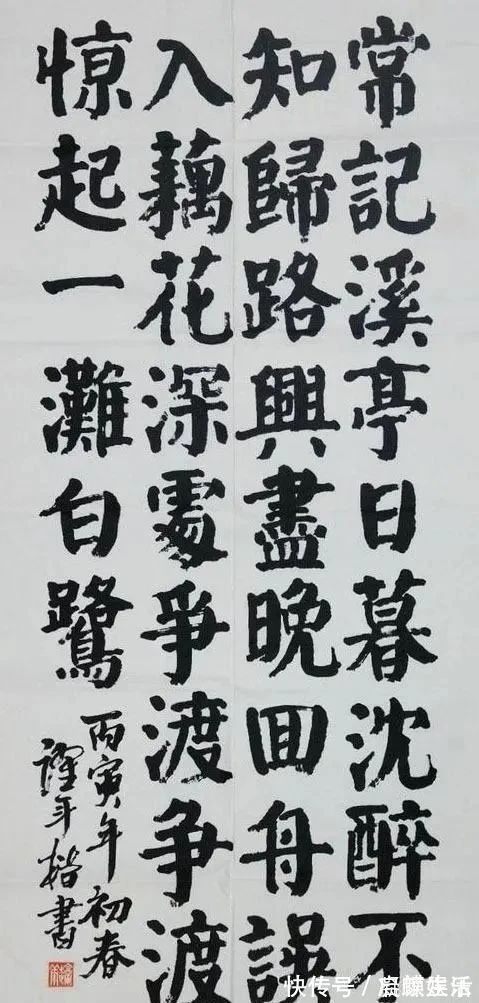 常記溪亭日暮沈醉不
知歸路興盡晚回舟誤
入藕花深處爭渡争渡
惊起一灘白鷺
丙寅年初春
年楷書
快传号／